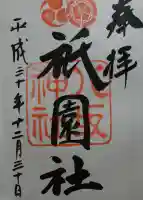 奉拝
八坂神社
祇園社
平成三十年十二月三十日